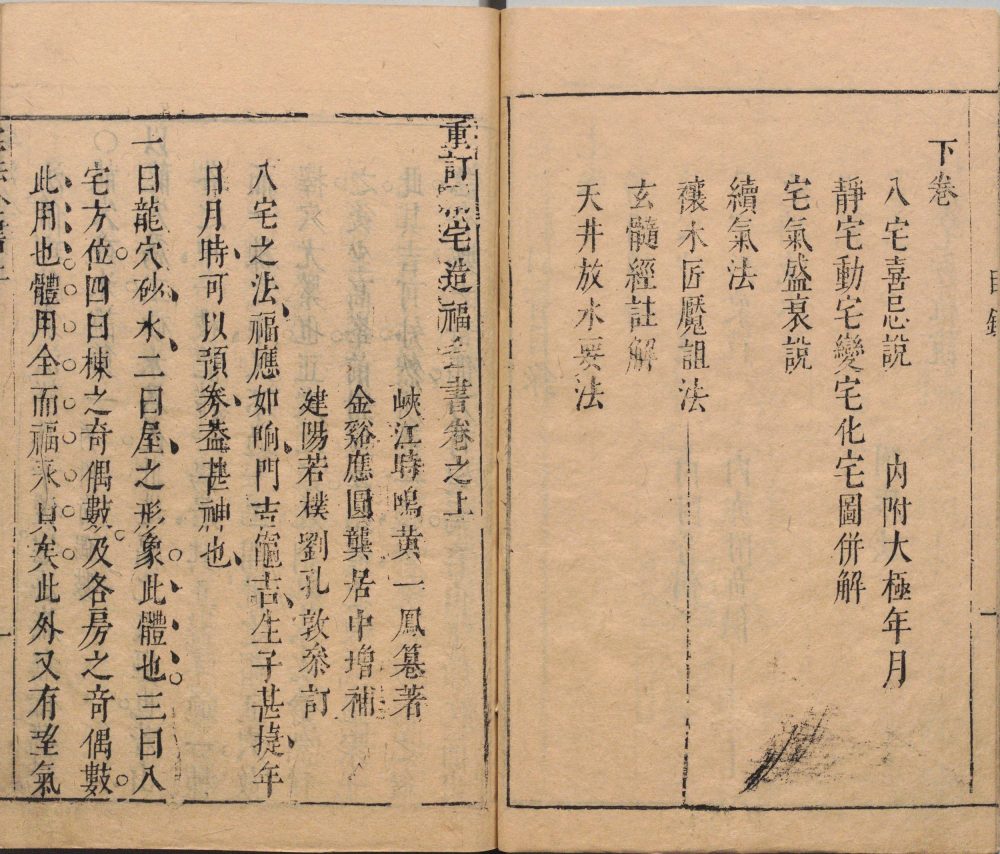 下卷
八宅喜忌說 內附大極年月
靜宅動宅變宅化宅圖併解
宅氣盛衰說
續氣法
禳木匠魘詛法
玄髓經註解
天井放水要法
目錄
一
重訂 宅造福全書卷之上
峽江時鳴黃一鳳纂著
金谿應圓龔居中增補
建陽若樸劉孔敦叅訂
八宅之法福應如响門吉竈吉生子甚捷年
日月時可以預劵葢甚神也
一曰龍穴砂水二曰屋之形象此體也三曰八
宅方位四曰棟之奇偶數及各房之奇偶數
此用也體用全而福 矣此外又有 氣
一